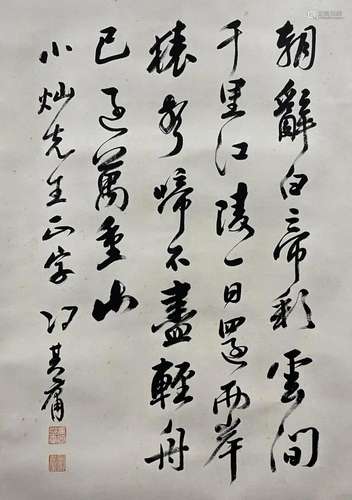 朝辭白帝彩雲间
千里江陵一日還两岸
猿聲啼不盡輕舟
已過萬重山
小灿先生正字 冯其庸